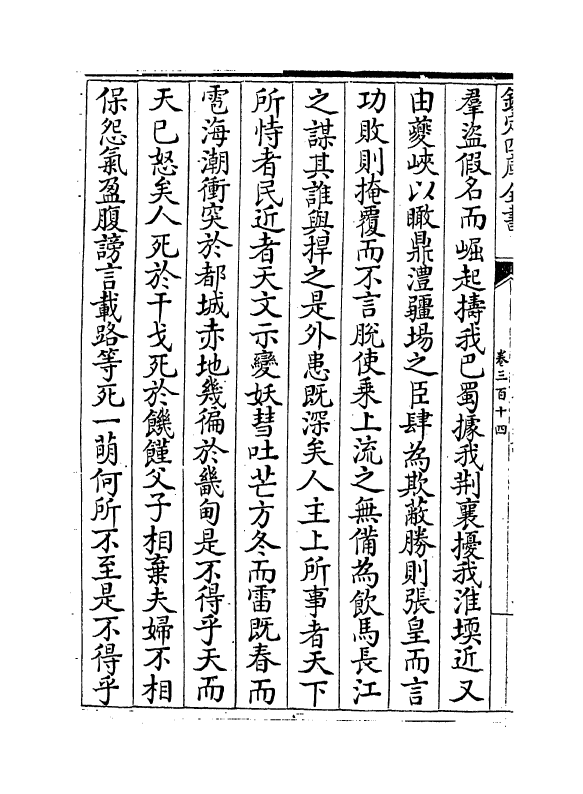 欽定四庫全書
卷三百十四
羣盜假名而崛起擣我巴蜀據我荆襄擾我淮堧近又
由夔峽以瞰鼎澧疆場之臣肆為欺蔽勝則張皇而言
功敗則掩覆而不言脫使乘上流之無備為飲馬長江
之謀其誰與捍之是外患既深矣人主上所事者天下
所恃者民近者天文示變妖彗吐芒方冬而雷既春而
雹海潮衝突於都城赤地幾徧於畿甸是不得乎天而
天巳怒矣人死於干戈死於饑饉父子相棄夫婦不相
保怨氣盈腹謗言載路等死一萌何所不至是不得乎